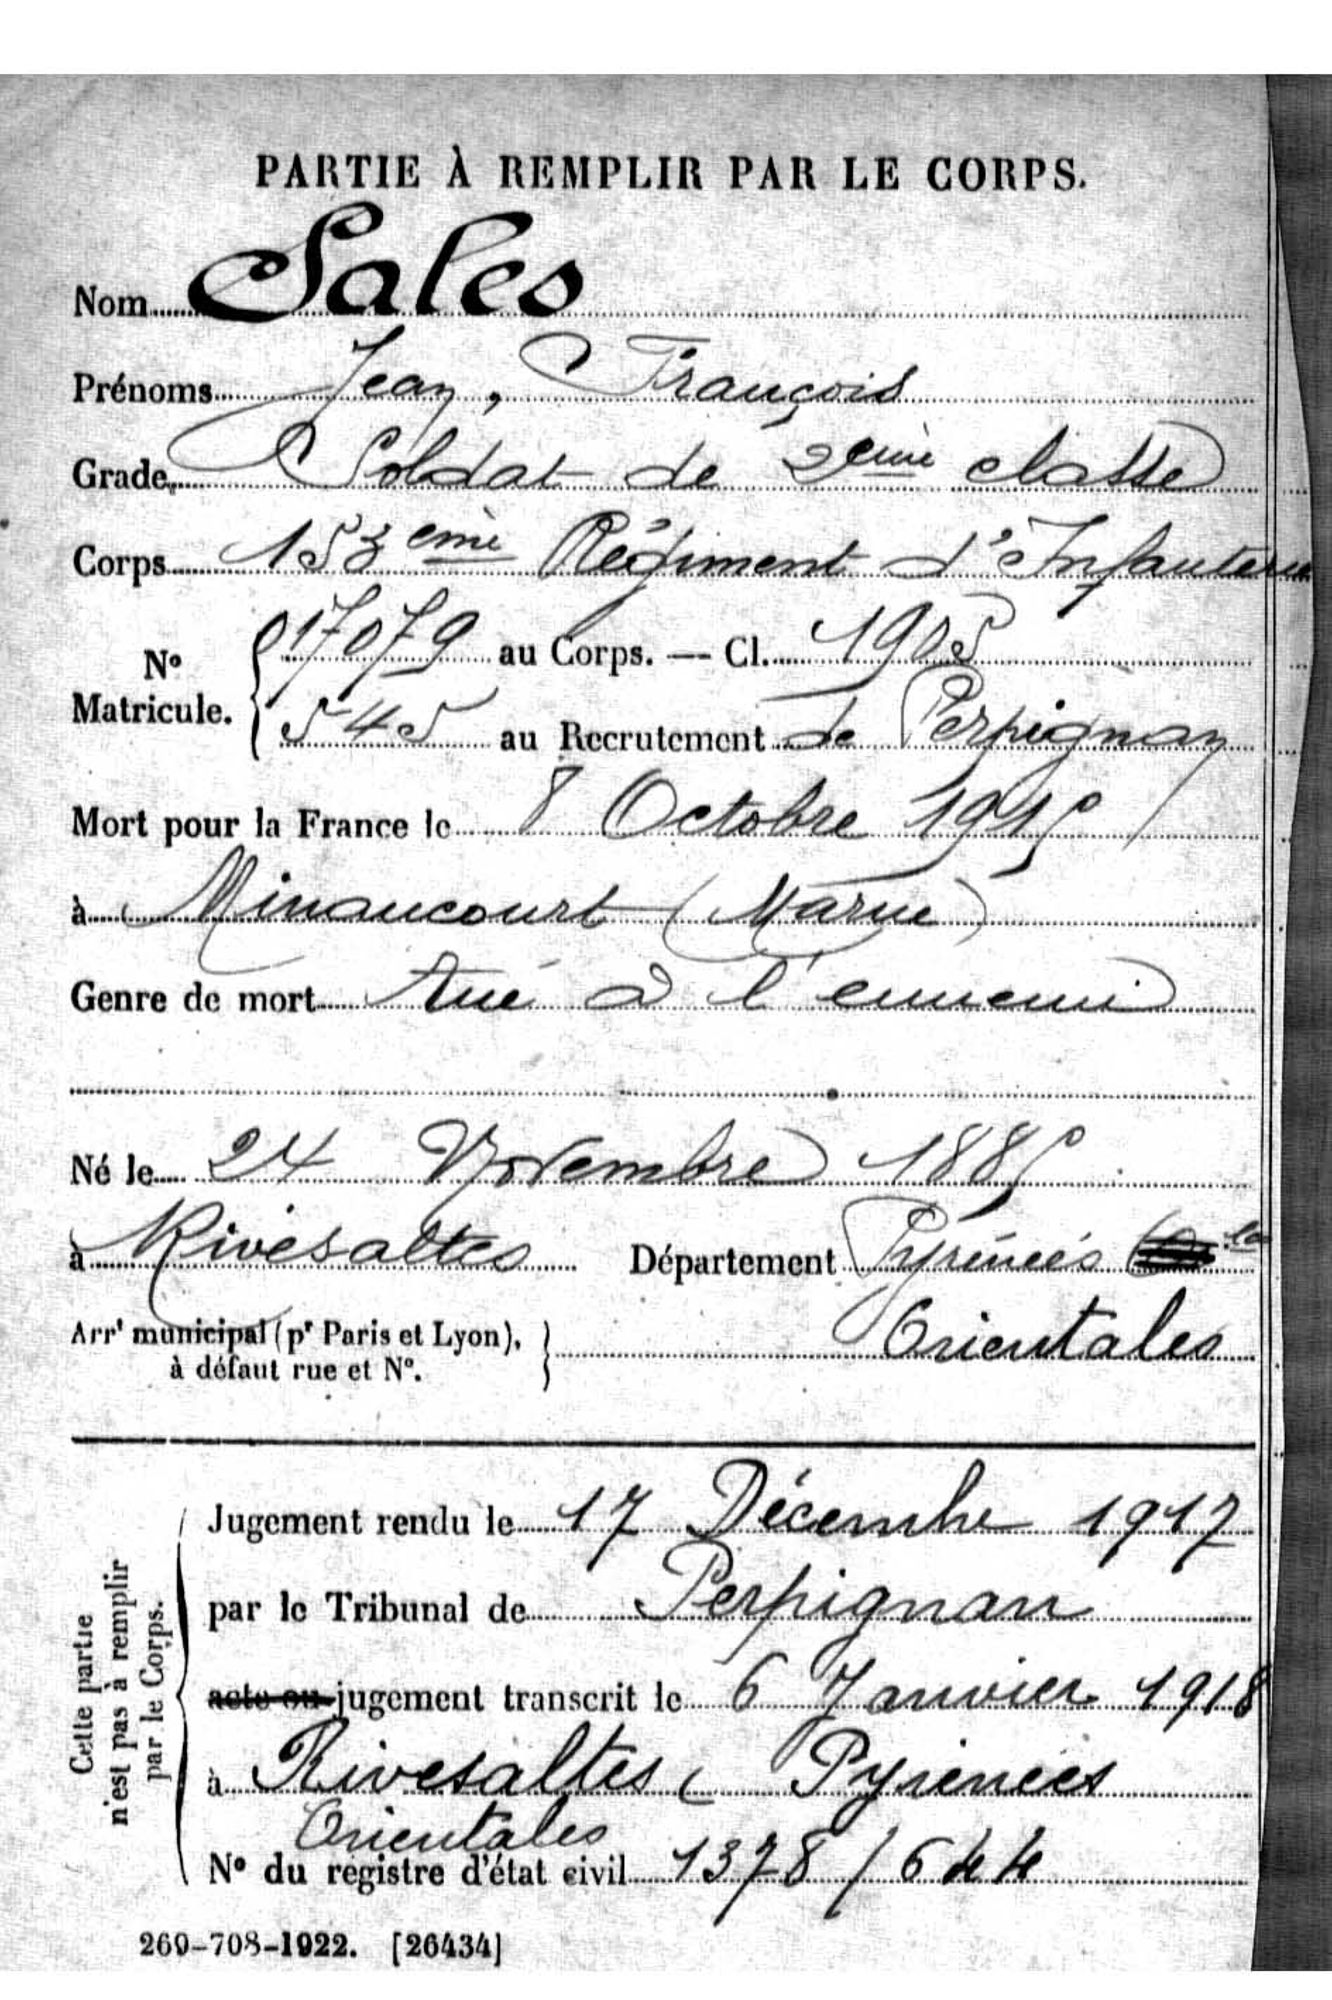 PARTIE À REMPLIR PAR LE CORPS.
Nom Sales
Prénoms Jean, François
Grade Soldat de 2eme classe
Corps 153eme Régiment d'Infanterie
N° Matricule. { 017079 au Corps. — Cl. 1905
545 au Recrutement de Perpignan
Mort pour la France le 8 Octobre 1915
à Minaucourt (Marne)
Genre de mort Tué à l'ennemi
Né le 24 Novembre 1885
à Rivesaltes Département Pyrénées
Orientales
Arrt municipal (pr Paris et Lyon), }
à défaut rue et N°.
Cette partie n'est pas à remplir par le Corps.
Jugement rendu le 17 Décembre 1917
par le Tribunal de Perpignan
acte ou jugement transcrit le 6 Janvier 1918
à Rivesaltes (Pyrénées
Orientales
N° du registre d'état civil 1378/644
269-708-1922. [26434]